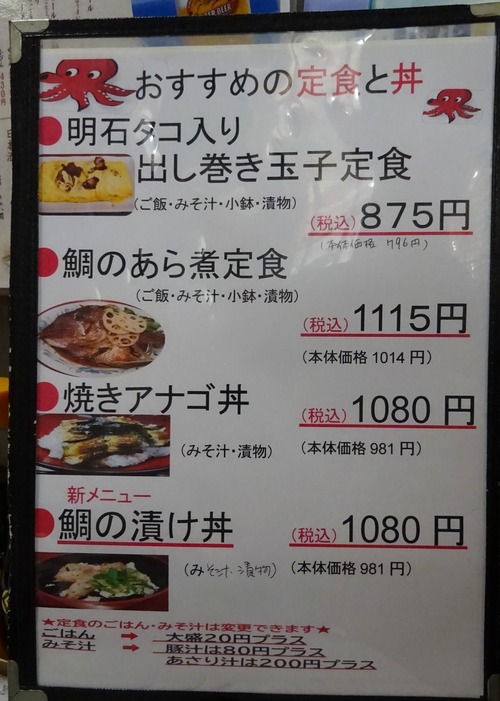 おすすめの定食と丼
●明石タコ入り
出し巻き玉子定食
(ご飯・みそ汁・小鉢・漬物)
(税込)875円
(本体価格 796円)
●鯛のあら煮定食
(ご飯・みそ汁・小鉢・漬物)
(税込)1115円
(本体価格1014円)
●焼きアナゴ丼
(税込)1080円
(みそ汁・漬物)
(本体価格981円)
新メニュー
●鯛の漬け丼
(税込)1080円
(みそ汁・漬物)
(本体価格981円)
★定食のごはん・みそ汁は変更できます★
ごはん ➡ 大盛20円プラス
みそ汁 ➡ 豚汁は80円プラス
あさり汁は200円プラス